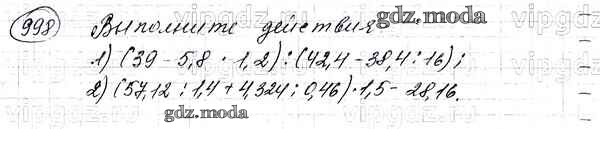 998 Выполните действия
gdz.moda
1) (39 - 5,8 · 1,2) : (42,4 - 38,4 : 16) ;
2) (57,12 : 1,4 + 4,324 : 0,46) · 1,5 - 28,16.
gdz.moda